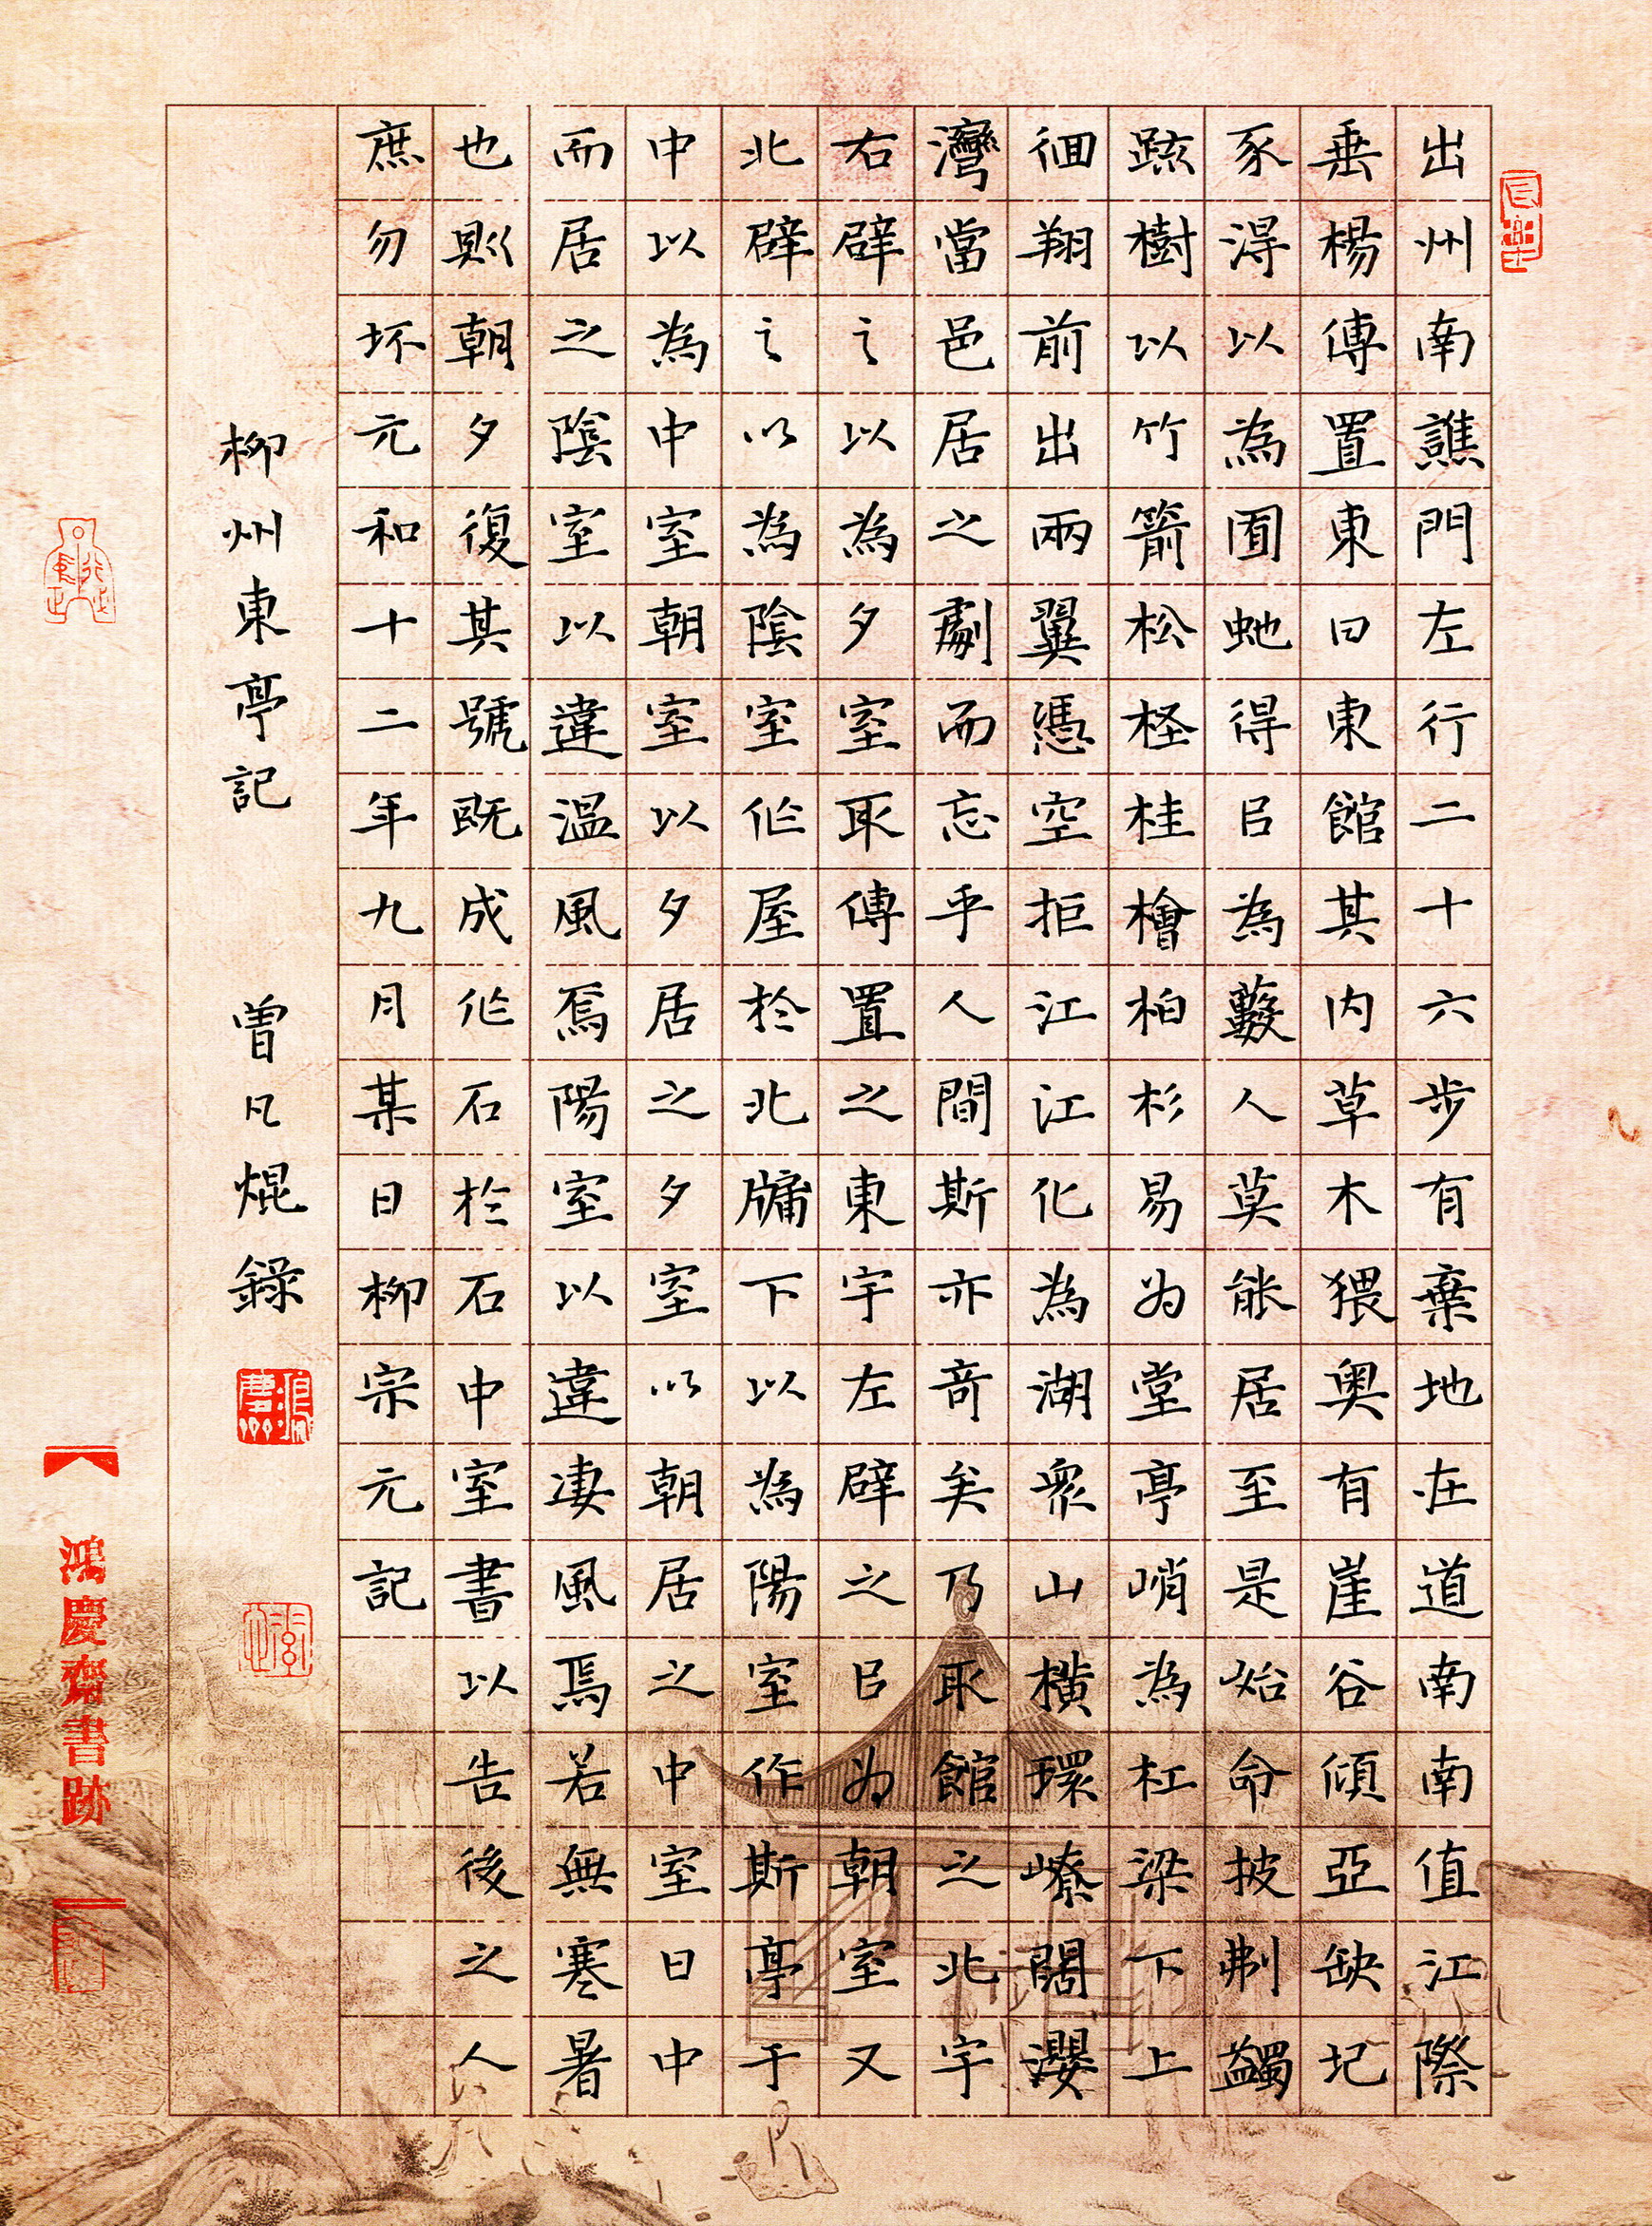 出州南譙門左行二十六步有棄地在道南南值江際
垂楊傳置東曰東館其内草木猥奥有崖谷傾亞缺圮
豕得以為囿虵得㠯為藪人莫能居至是始命披刜蠲
䟽樹以竹箭松柽桂檜柏杉易为堂亭峭為杠梁下上
徊翔前出兩翼憑空拒江江化為湖衆山橫環嶛闊瀴
灣當邑居之劇而忘乎人間斯亦竒矣乃取館之北宇
右辟之以為夕室取傳置之東宇左辟之㠯为朝室又
北辟之以為陰室作屋於北牗下以為陽室作斯亭于
中以為中室朝室以夕居之夕室以朝居之中室日中
而居之陰室以違温風焉陽室以違凄風焉若無寒暑
也則朝夕復其號既成作石於石中室書以告後之人
庶勿坏元和十二年九月某日柳宗元記
柳州東亭記 曾凡焜錄
鴻慶齋書跡